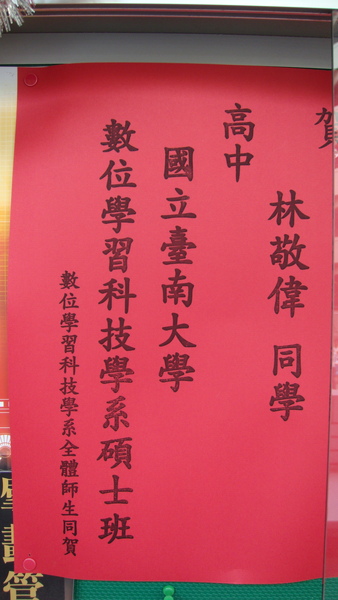 賀
林敬偉同學
高中
國立臺南大學
數位學習科技學系碩士班
數位學習科技學系全體師生同賀